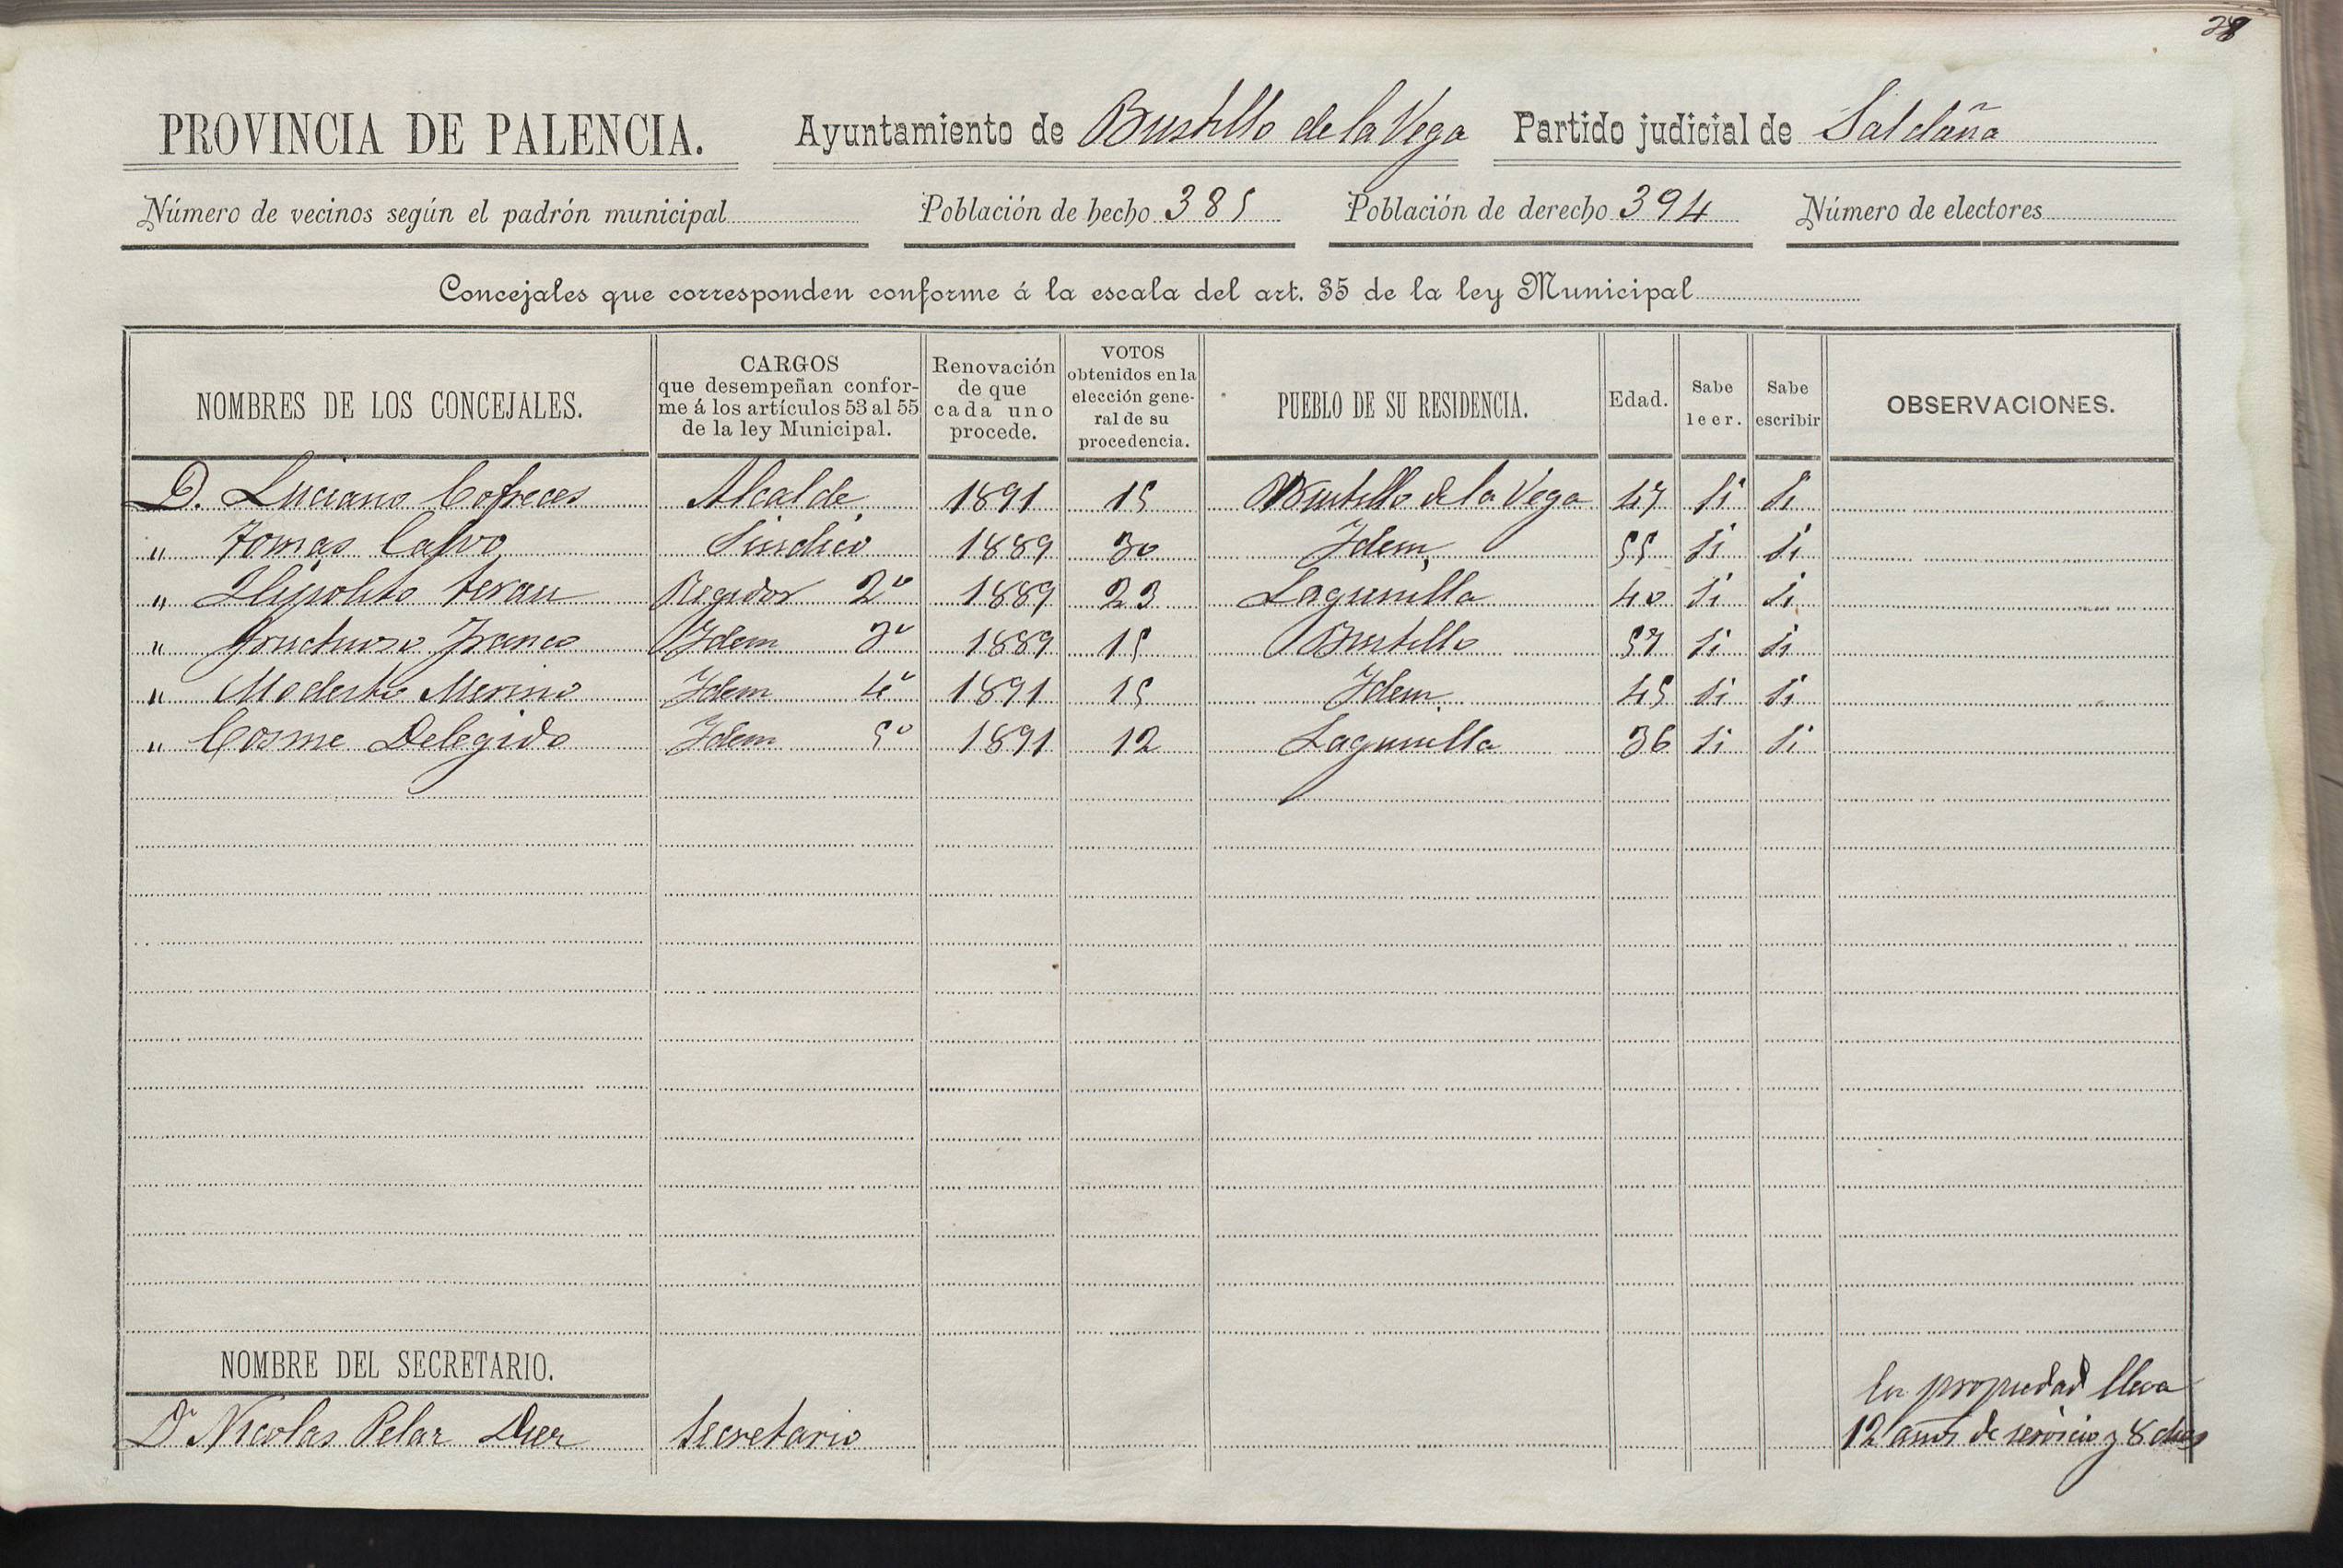 28
PROVINCIA DE PALENCIA. Ayuntamiento de Bustillo de la Vega Partido judicial de Saldaña
Número de vecinos según el padrón municipal Población de hecho 385 Población de derecho 394 Número de electores
Concejales que corresponden conforme á la escala del art. 35 de la ley Municipal
NOMBRES DE LOS CONCEJALES. CARGOS que desempeñan conforme á los artículos 53 al 55 de la ley Municipal. Renovación de que cada uno procede. VOTOS obtenidos en la elección general de su procedencia. PUEBLO DE SU RESIDENCIA. Edad. Sabe leer. Sabe escribir OBSERVACIONES.
D. Luciano Cofreces Alcalde 1891 15 Bustillo de la Vega 47 Si Si
" Tomás Calvo Sindico 1889 30 Idem 55 Si Si
" Hipolito Teran Regidor 2º 1889 23 Lagunilla 40 Si Si
" Fructuoso Franco Idem 3º 1889 15 Bustillo 57 Si Si
" Modesto Merino Idem 4º 1891 15 Idem 45 Si Si
" Cosme Delegido Idem 5º 1891 12 Lagunilla 36 Si Si
NOMBRE DEL SECRETARIO.
Dn Nicolas Pelaz Diez Secretario En propiedad lleva
12 años de servicio y 8 dias